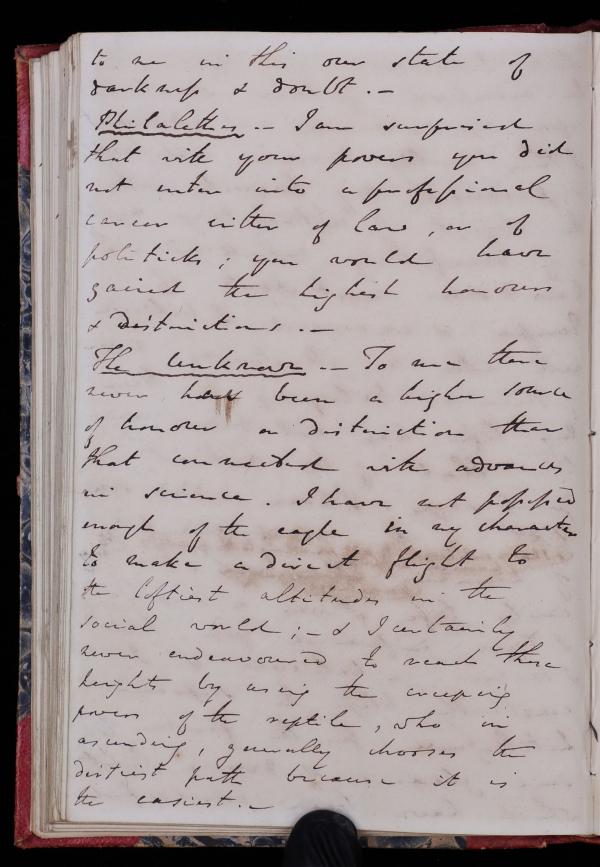 to me in this our state of
darkness & doubt. —
Philalethes — I am surprised
that with your powers you did
not enter into a professional
career either of law, or of
politicks; you would have
gained the highest honours
& distinctions. —
The Unknown — To me there
never has been a higher source
of honour or distinction than
that connected with advances
in science. I have not possessed
enough of the eagle in my character
to make a direct flight to
the loftiest altitudes in the
social world; — & I certainly
never endeavoured to reach those
heights by using the creeping
powers of the reptile, who in
ascending, generally chooses the
dirtiest path because it is
the easiest. —